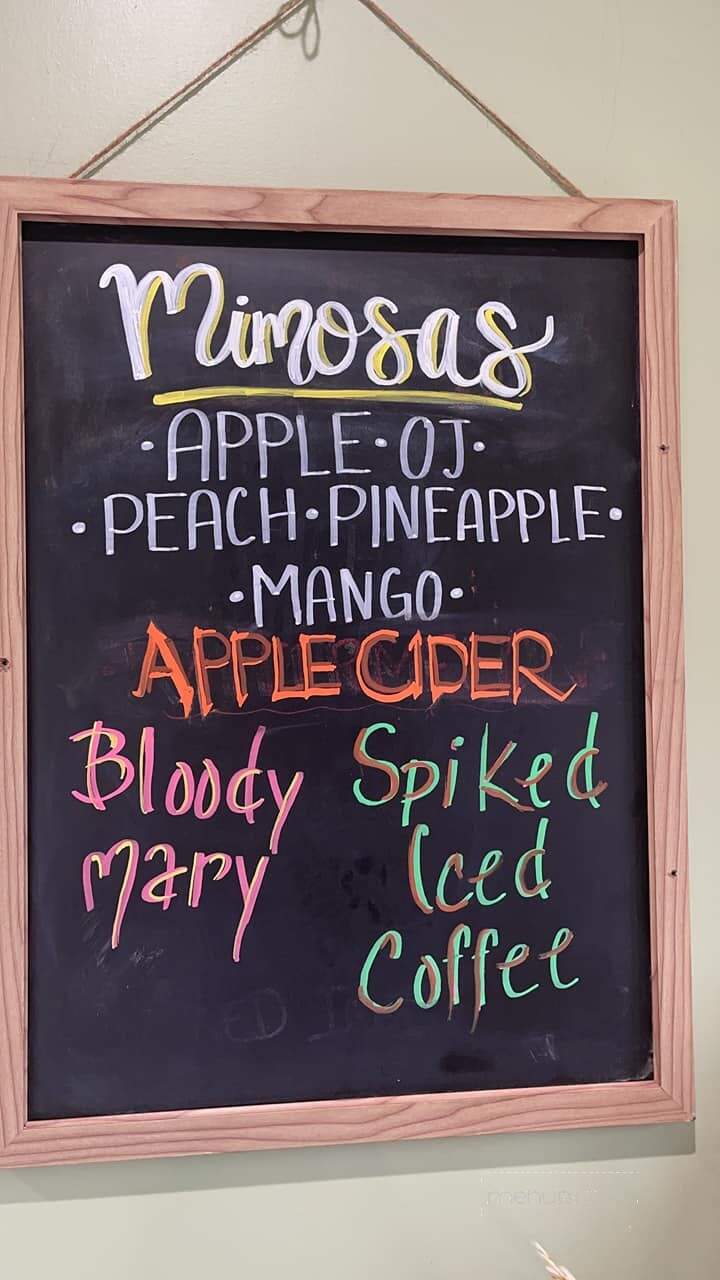 Mimosas
· APPLE · OJ ·
· PEACH · PINEAPPLE ·
· MANGO ·
APPLE CIDER
Bloody
Mary
Spiked
Iced
Coffee